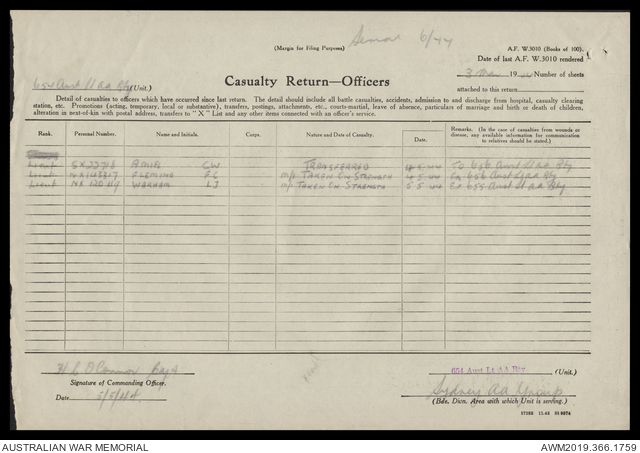 6/44
(Margin for Filing Purposes)
A.F. W.3010 (Books of 100).
Date of last A.F. W.3010 rendered
654 Aust Lt AA Bty (Unit.)
Casualty Return—Officers
3 19 Number of sheets
attached to this return
Detail of casualties to officers which have occurred since last return. The detail should include all battle casualties, accidents, admission to and discharge from hospital, casualty clearing
station, etc. Promotions (acting, temporary, local or substantive), transfers, postings, attachments, etc., courts-martial, leave of absence, particulars of marriage and birth or death of children,
alteration in next-of-kin with postal address, transfers to "X" List and any other items connected with an officer's service.
Rank. Personal Number. Name and Initials. Corps. Nature and Date of Casualty. Date. Remarks. (In the case of casualties from wounds or
disease, any available information for communication
to relatives should be stated.)
Lieut GW TRANSFERRED 4.5.44 To 656 Aust Lt AA Bty
Lieut FLEMING m/p TAKEN ON STRENGTH 4.5.44 Ex 656 Aust Lt AA Bty
Lieut WARHAM LJ m/p TAKEN ON STRENGTH 5.5.44 Ex 655 Aust Lt AA Bty
O'Connor Capt
Signature of Commanding Officer.
Date 5/5/44
654 Aust Lt AA Bty (Unit.)
Sydney AA Group
(Bde. Dwn. Area with which Unit is serving.)
AUSTRALIAN WAR MEMORIAL
AWM2019.366.1759